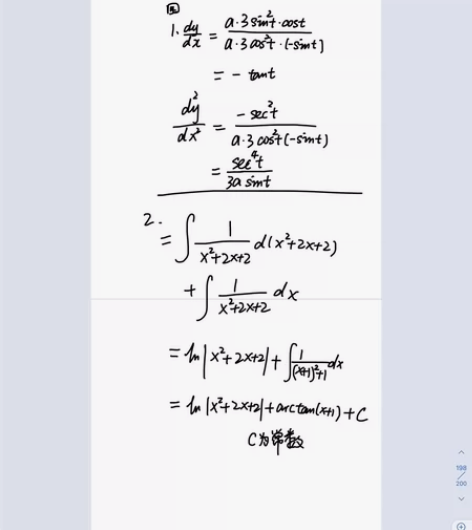 五
1. dy/dx = a·3sin²t·cost / a·3cos²t·(-sint)
= - tant
dy²/dx² = -sec²t / a·3cos²t(-sint)
= sec⁴t / 3a sint
2.
= ∫ 1/x²+2x+2 d(x²+2x+2)
+ ∫ 1/x²+2x+2 dx
= ln|x²+2x+2| + ∫ 1/(x+1)²+1 dx
= ln|x²+2x+2| + arctan(x+1) + C
C为常数
198
200